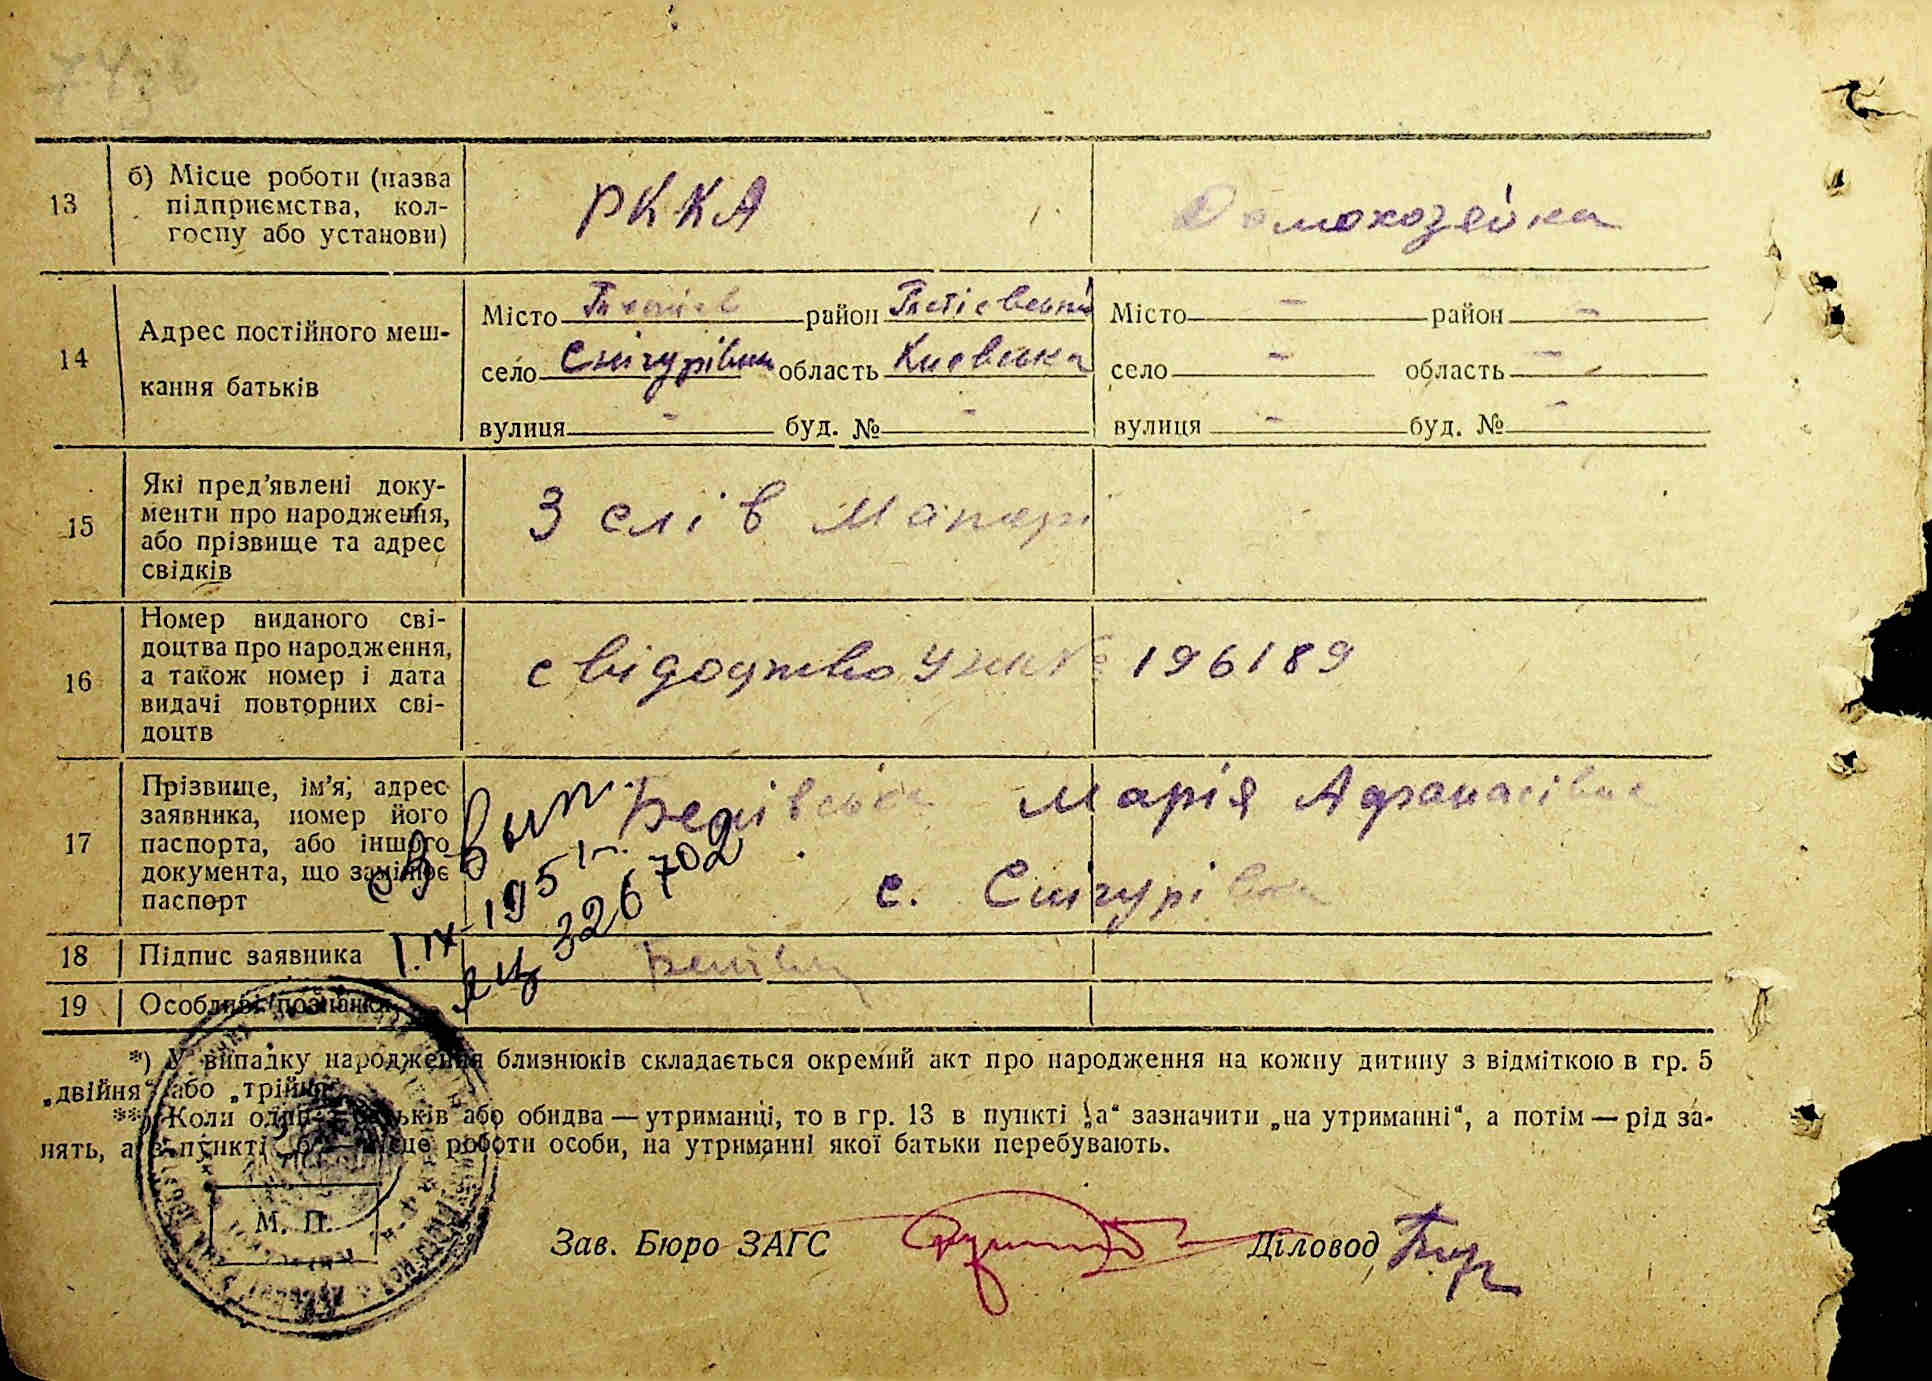 13
б) Місце роботи (назва
підприємства, кол-
госпу або установи)
РККА
Домохозяйка
14
Адрес постійного меш-
кання батьків
Місто район Місто — район —
село Снігурівка область Киевська село — область —
вулиця — буд. № — вулиця — буд. № —
15
Які пред'явлені доку-
менти про народження,
або прізвище та адрес
свідків
З слів Матері
16
Номер виданого сві-
доцтва про народження,
а також номер і дата
видачі повторних сві-
доцтв
свідоцтво № 196189
17
Прізвище, ім'я, адрес
заявника, номер його
паспорта, або іншого
документа, що замінює
паспорт
Марія Афанасівна
с. Снігурівка
1.IX-1951г.
ЯЦ 326702
18 Підпис заявника
19 Особливі познаки
*) У випадку народження близнюків складається окремий акт про народження на кожну дитину з відміткою в гр. 5
„двійня“ або „трійня“.
**) Коли один з батьків або обидва — утриманці, то в гр. 13 в пункті „а“ зазначити „на утриманні“, а потім — рід за-
нять, а в пункті „б“ — місце роботи особи, на утриманні якої батьки перебувають.
М. П.
Зав. Бюро ЗАГС Діловод